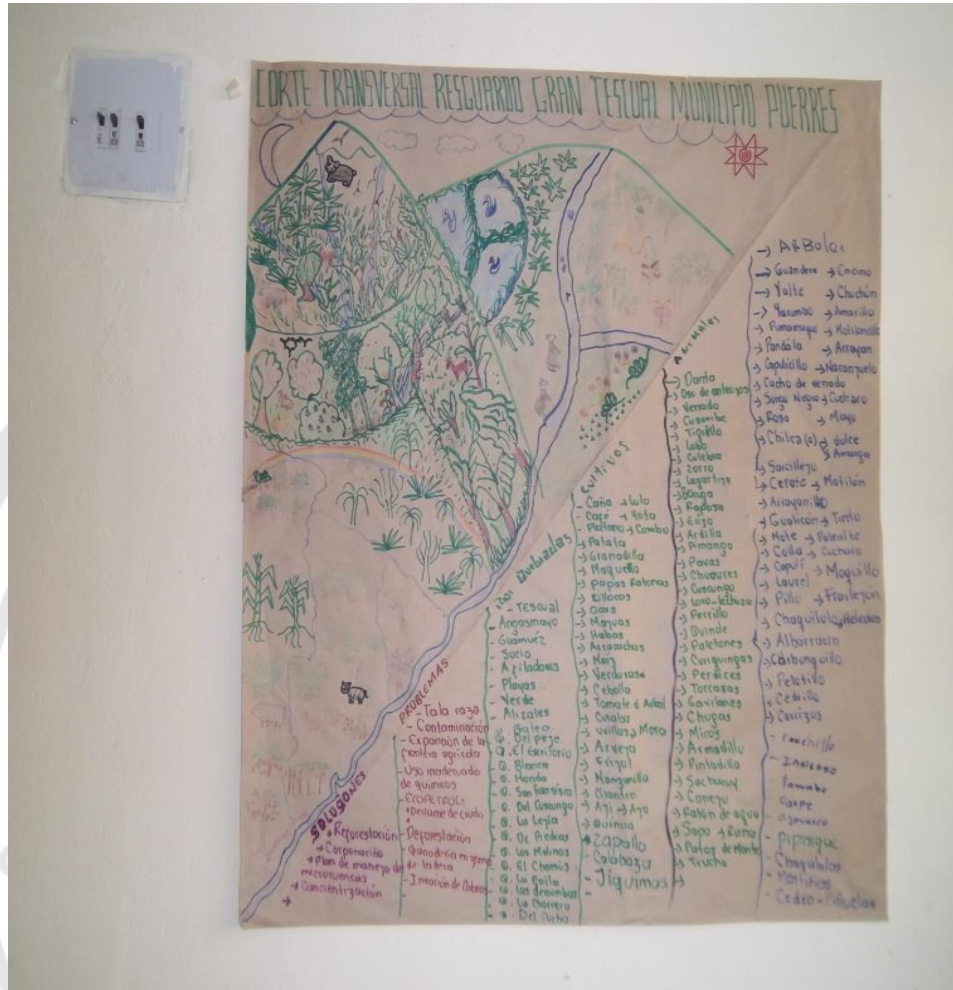 CORTE TRANSVERSAL RESGUARDO GRAN TESCUAL MUNICIPIO PUERRES
SOLUSONES
Reforestación
Corponariño
Plan de manejo de
Concientización
PROBLEMAS
- Tala raza
- Contaminación
- Expansión de la
agrícola
- Uso inadecuado
de químicos
- ECOPETROL:
Derrame de crudo
- Deforestación
Ganadería en zona
de ladera
Quebradas
- Tescual
- Angasmayo
- Guamuez
- Sucio
- Afiladores
- Playas
- Verde
- Alizales
El Escritorio
Q. Blanca
Q. Honda
Q. San Francisco
Q. Del Cusungo
Q. La Legia
Q. De Piedras
Q. Los Molinos
Q. El Chamis
Q. Los derrumbos
Q. La Chorrera
Cultivos
- Caña → Lulo
- Café → Yota
- Plátano → Combo
- Patata
- Granadilla
Moquello
Ollocos
Ocas
Majuas
Habas
Arracachas
Verduras
Cebolla
Tomate d Arbol
Uvillas → Mora
Arveja
Frijol
Manzanilla
Cilantro
Aji → Ajo
Quinua
Zapallo
- Calabaza
- Jiquimas
Animales
→ Danta
→ Oso de anteojos
→ Venado
→ Cusumbe
→ Tigrillo
→ Lobo
→ Culebra
→ Zorro
→ Lagartija
→ Raposa
→ Erizo
→ Ardilla
→ Pavas
→ Cusungo
→ Loro - lechuza
→ Perrillo
→ Quinde
→ Paletones
→ Curiquingas
→ Perdices
→ Torcazas
→ Gavilanes
→ Chugas
→ Micos
→ Armadillo
→ Pintadilla
→ Conejo
→ Ratón de agua
→ Sapo → Rana
→ Trucha
→ Arboles
→ Guandera → Encino
→ Yalte → Chuchún
→ Yarumbo → Amarillo
→ Pumamaque → Motiloncillo
→ Pandala → Arrayan
→ Capulicillo → Naranjuelo
→ Cacho de venado
→ Cucharo
→ Rosa → Mayo
→ Chilca (o) → dulce
→ Amarga
→ Cerote → Motilón
→ Arrayanillo
→ Gualicon → Tinto
→ Mote → Palealte
→ Colla → Cucharo
→ Capulí → Moquillo
→ Laurel
→ Pillo → Frailejón
→ Chaquilulo, Helechos
→ Albarracin
→ Carbonguillo
→ Pelotillo
→ Cedrillo
→ Carrizos
- Cauchillo
- Incienso
- Chaquilulos
- Mortiños
- Cedro